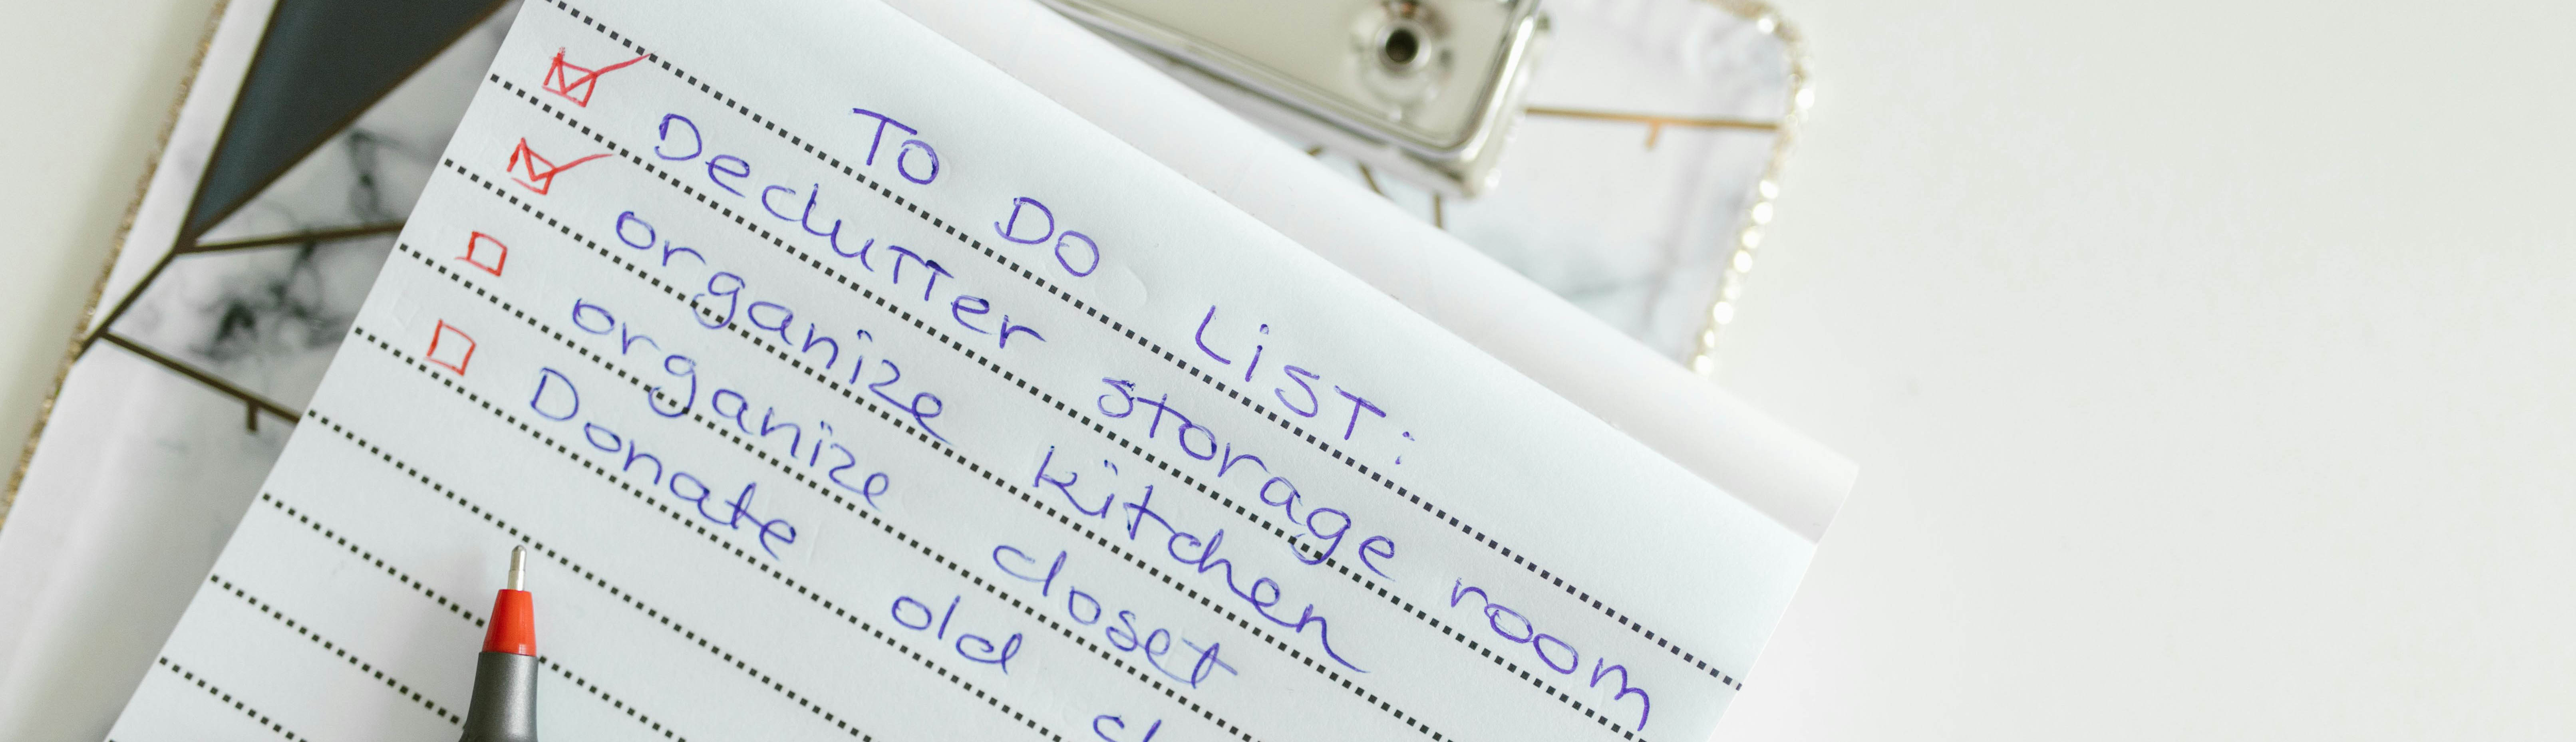 TO DO LIST:
Declutter storage room
organize kitchen
organize closet
Donate old